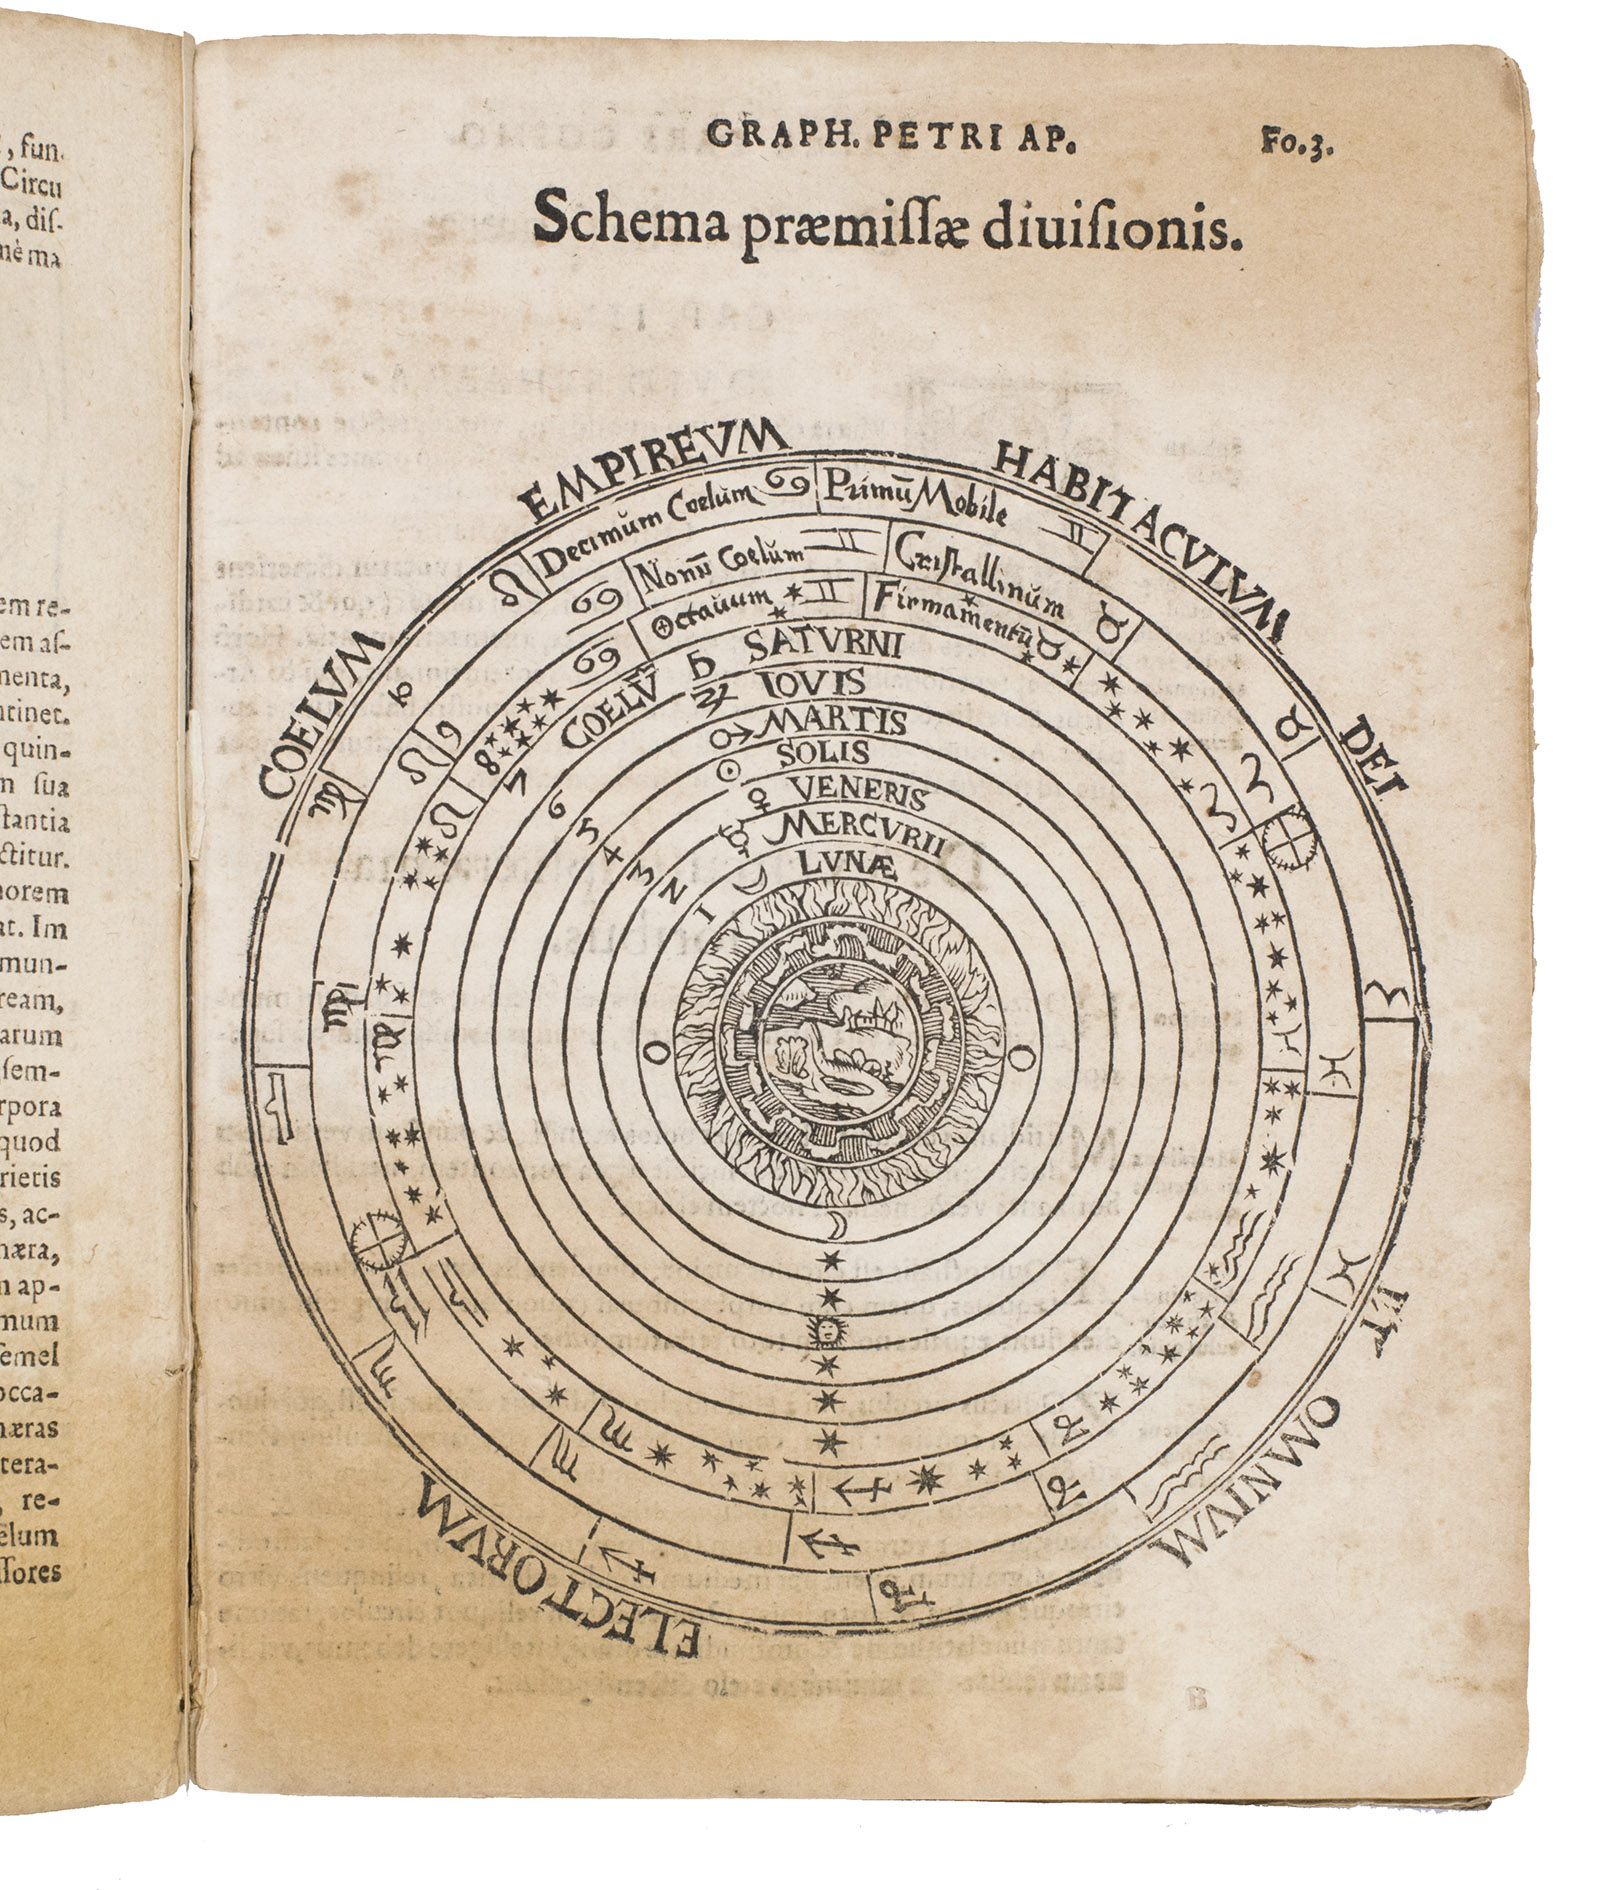 , fun
Circu
a, diſ-
nè ma
em re-
em aſ-
menta,
ntinet.
quin-
n ſua
ſtantia
ctitur.
norem
at. Im
mun-
ream,
arum
ſem-
rpora
quod
rietis
s, ac-
næra,
n ap-
mum
ſemel
occa-
næras
tera-
, re-
ælum
ſſores
GRAPH. PETRI AP. Fo.3.
Schema præmiſſæ diuiſionis.
COELVM EMPIREVM HABITACVLVM DEI ET OMNIVM ELECTORVM
Decimum Coelum ♋ Primū Mobile ♊
Nonū Coelum ♊ Criſtallinum ♉
Octauum ♊ Firmamentū ♉
8
7 COELV̄ ♄ SATVRNI
6 ♃ IOVIS
5 ♂ MARTIS
4 ☉ SOLIS
3 ♀ VENERIS
2 ☿ MERCVRII
1 ☽ LVNÆ